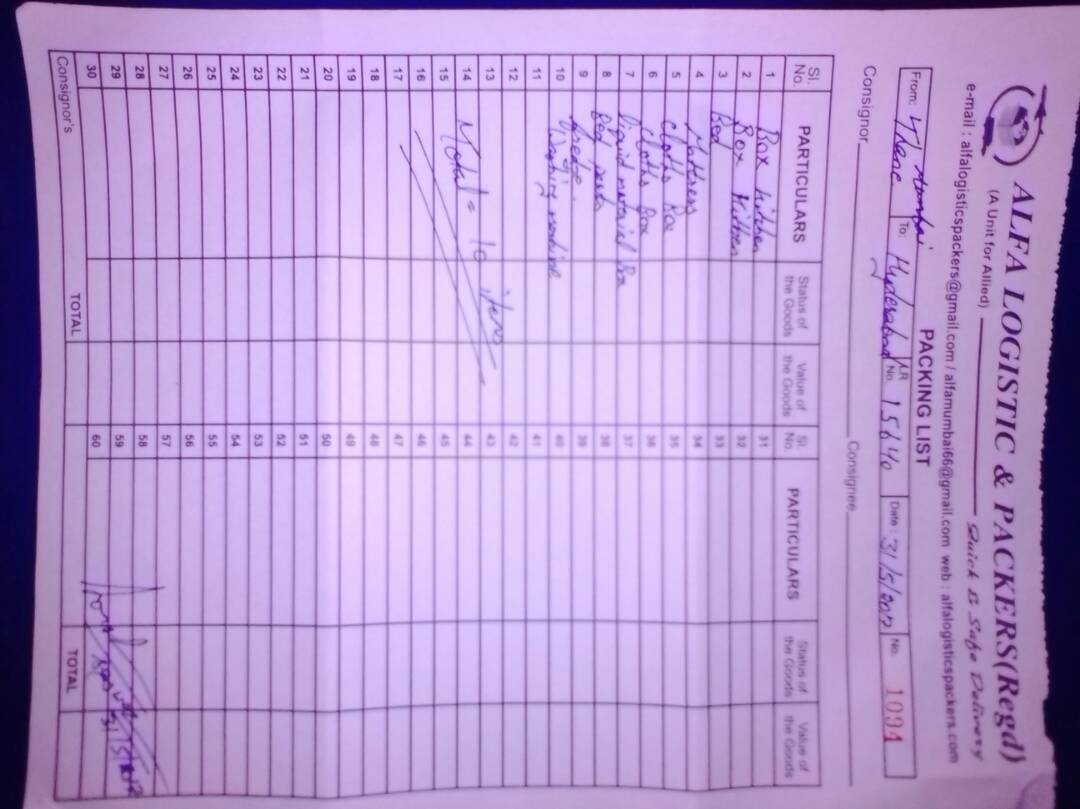 ALFA LOGISTIC & PACKERS(Regd)
(A Unit for Allied)
Quick & Safe Delivery
e-mail : alfalogisticspackers@gmail.com / alfamumbai66@gmail.com web : alfalogisticspackers.com
PACKING LIST
From: Thane Mumbai To: Hyderabad L.R. No. 15640 Date : 31/5/2017 No. 1094
Consignor Consignee
Sl. No. PARTICULARS Status of the Goods Value of the Goods Sl. No. PARTICULARS Status of the Goods Value of the Goods
1 Box kitchen 31
2 Box kitchen 32
3 Bed 33
4 Mattress 34
5 Cloths Box 35
6 Cloths Box 36
7 liquid material Box 37
8 Bed parts 38
9 freege 39
10 Washing machine 40
11 41
12 42
13 43
14 Total = 10 items 44
15 45
16 46
17 47
18 48
19 49
20 50
21 51
22 52
23 53
24 54
25 55
26 56
27 57
28 58
29 59
30 60
TOTAL TOTAL
Consignor's